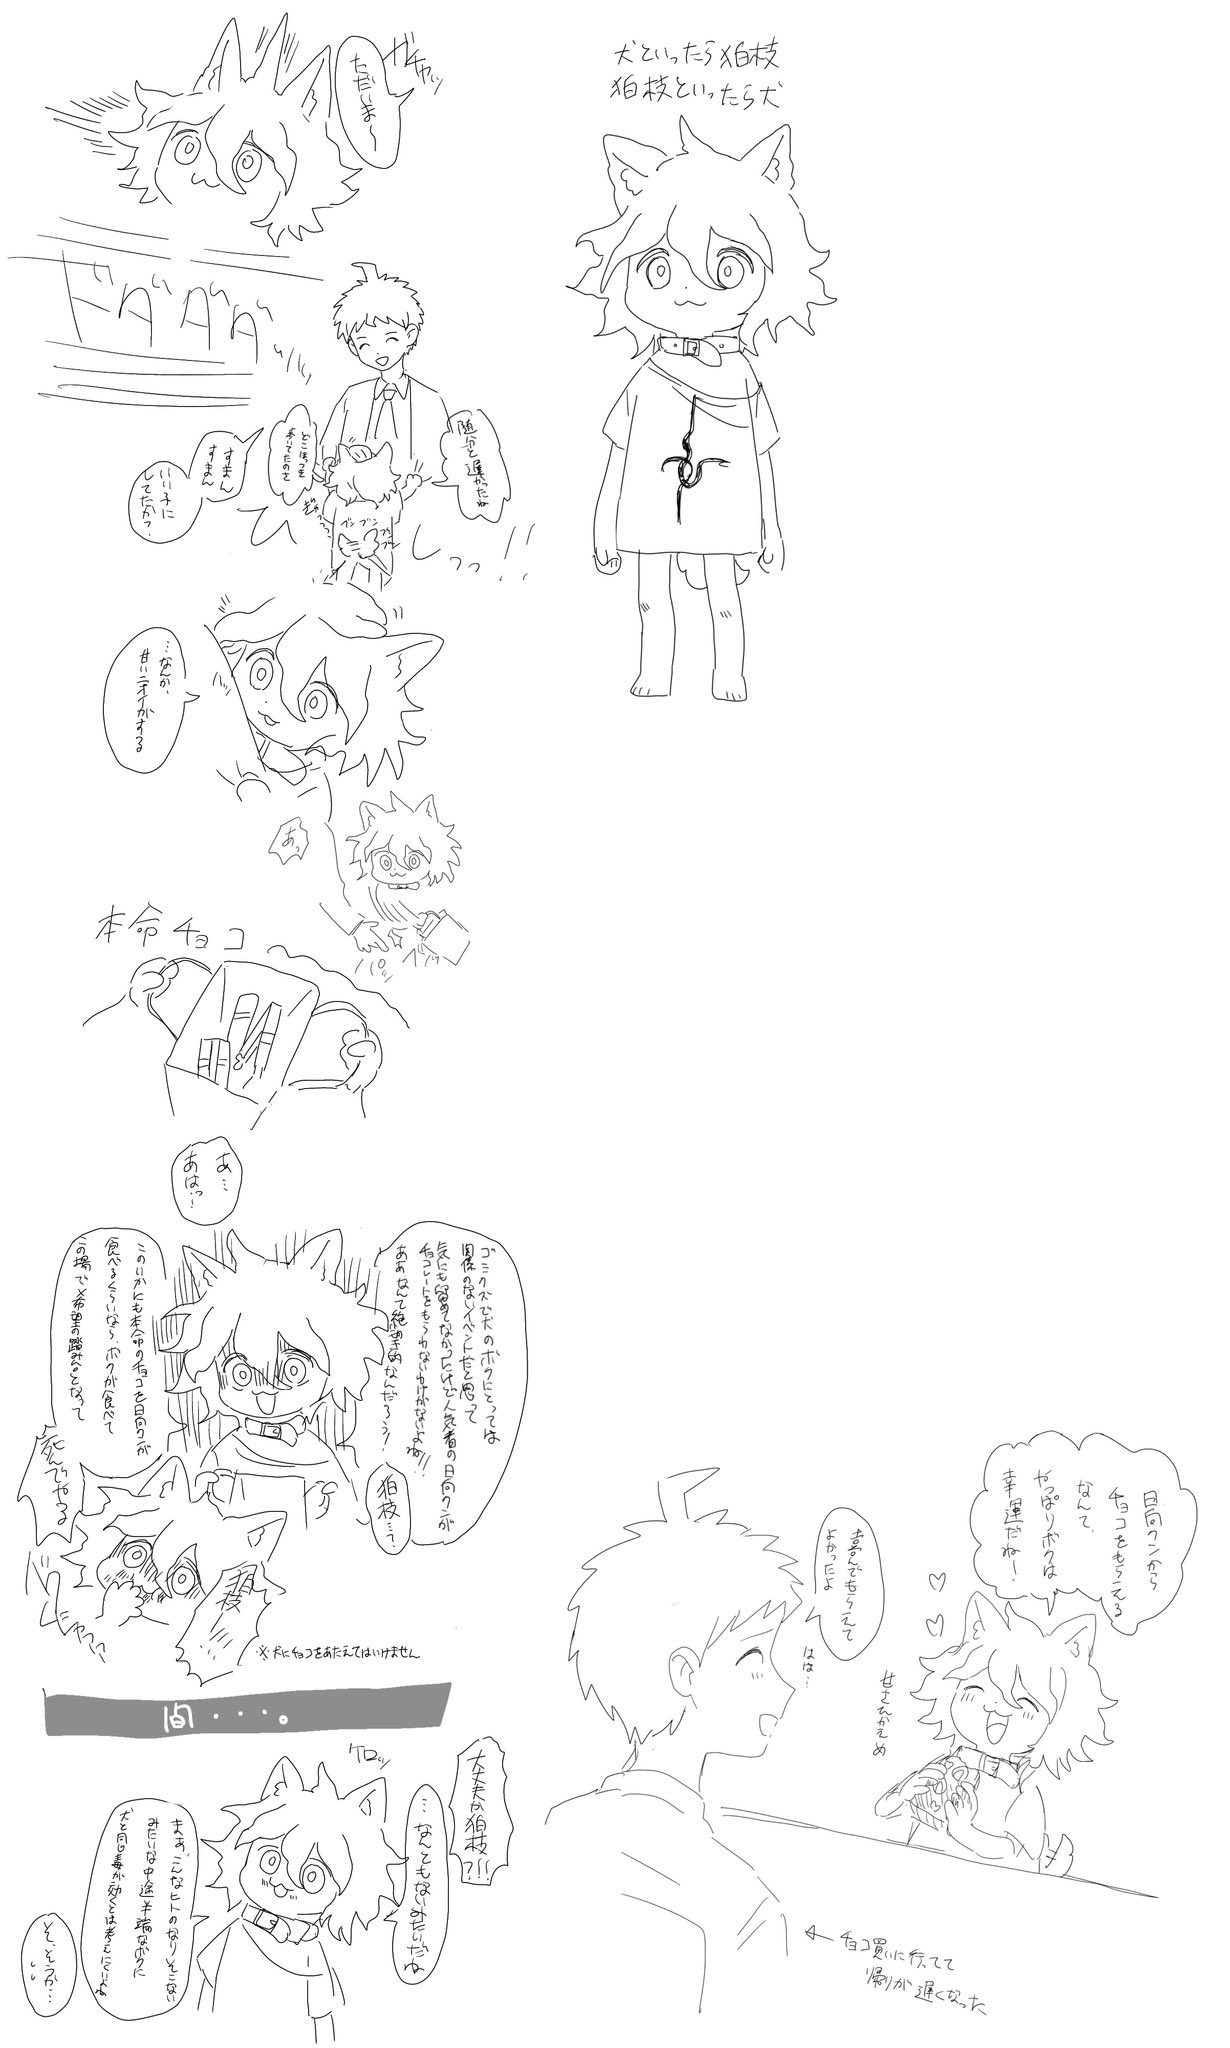 犬といったら狛枝
狛枝といったら犬
ガチャッ
ただいま〜
ドダダダ
随分と遅かったね
どこほっつき
歩いてたのさ
すまん
すまん
いい子に
してたか?
ひしっっ!!
ぎゅっっっ
ブンブン
…なんか、
甘いニオイがする
あっ
パッ
本命チョコ
あ…
あはっ!
ゴミクズで犬のボクにとっては
関係のないイベントだと思って
気にも留めてなかったけど人気者の日向クンが
チョコレートをもらわないわけがないよね!!
ああなんて絶望的なんだろう!
このいかにも本命のチョコを日向クンが
食べるくらいなら、ボクが食べて
この場で希望の踏み台となって
狛枝…?
死んでやる
狛枝
※犬にチョコをあたえてはいけません
間・・・。
大丈夫か狛枝?!!
ケロッ
…なんともないみたいだね
まあ、こんなヒトのなりそこない
みたいな中途半端なボクに
犬と同じ毒が効くとは考えにくいよね
そ、そうか…
日向クンから
チョコをもらえる
なんて、
やっぱりボクは
幸運だね!
喜んでもらえて
よかったよ
はは…
甘さひかえめ
←チョコ買いに行ってて
帰りが遅くなった